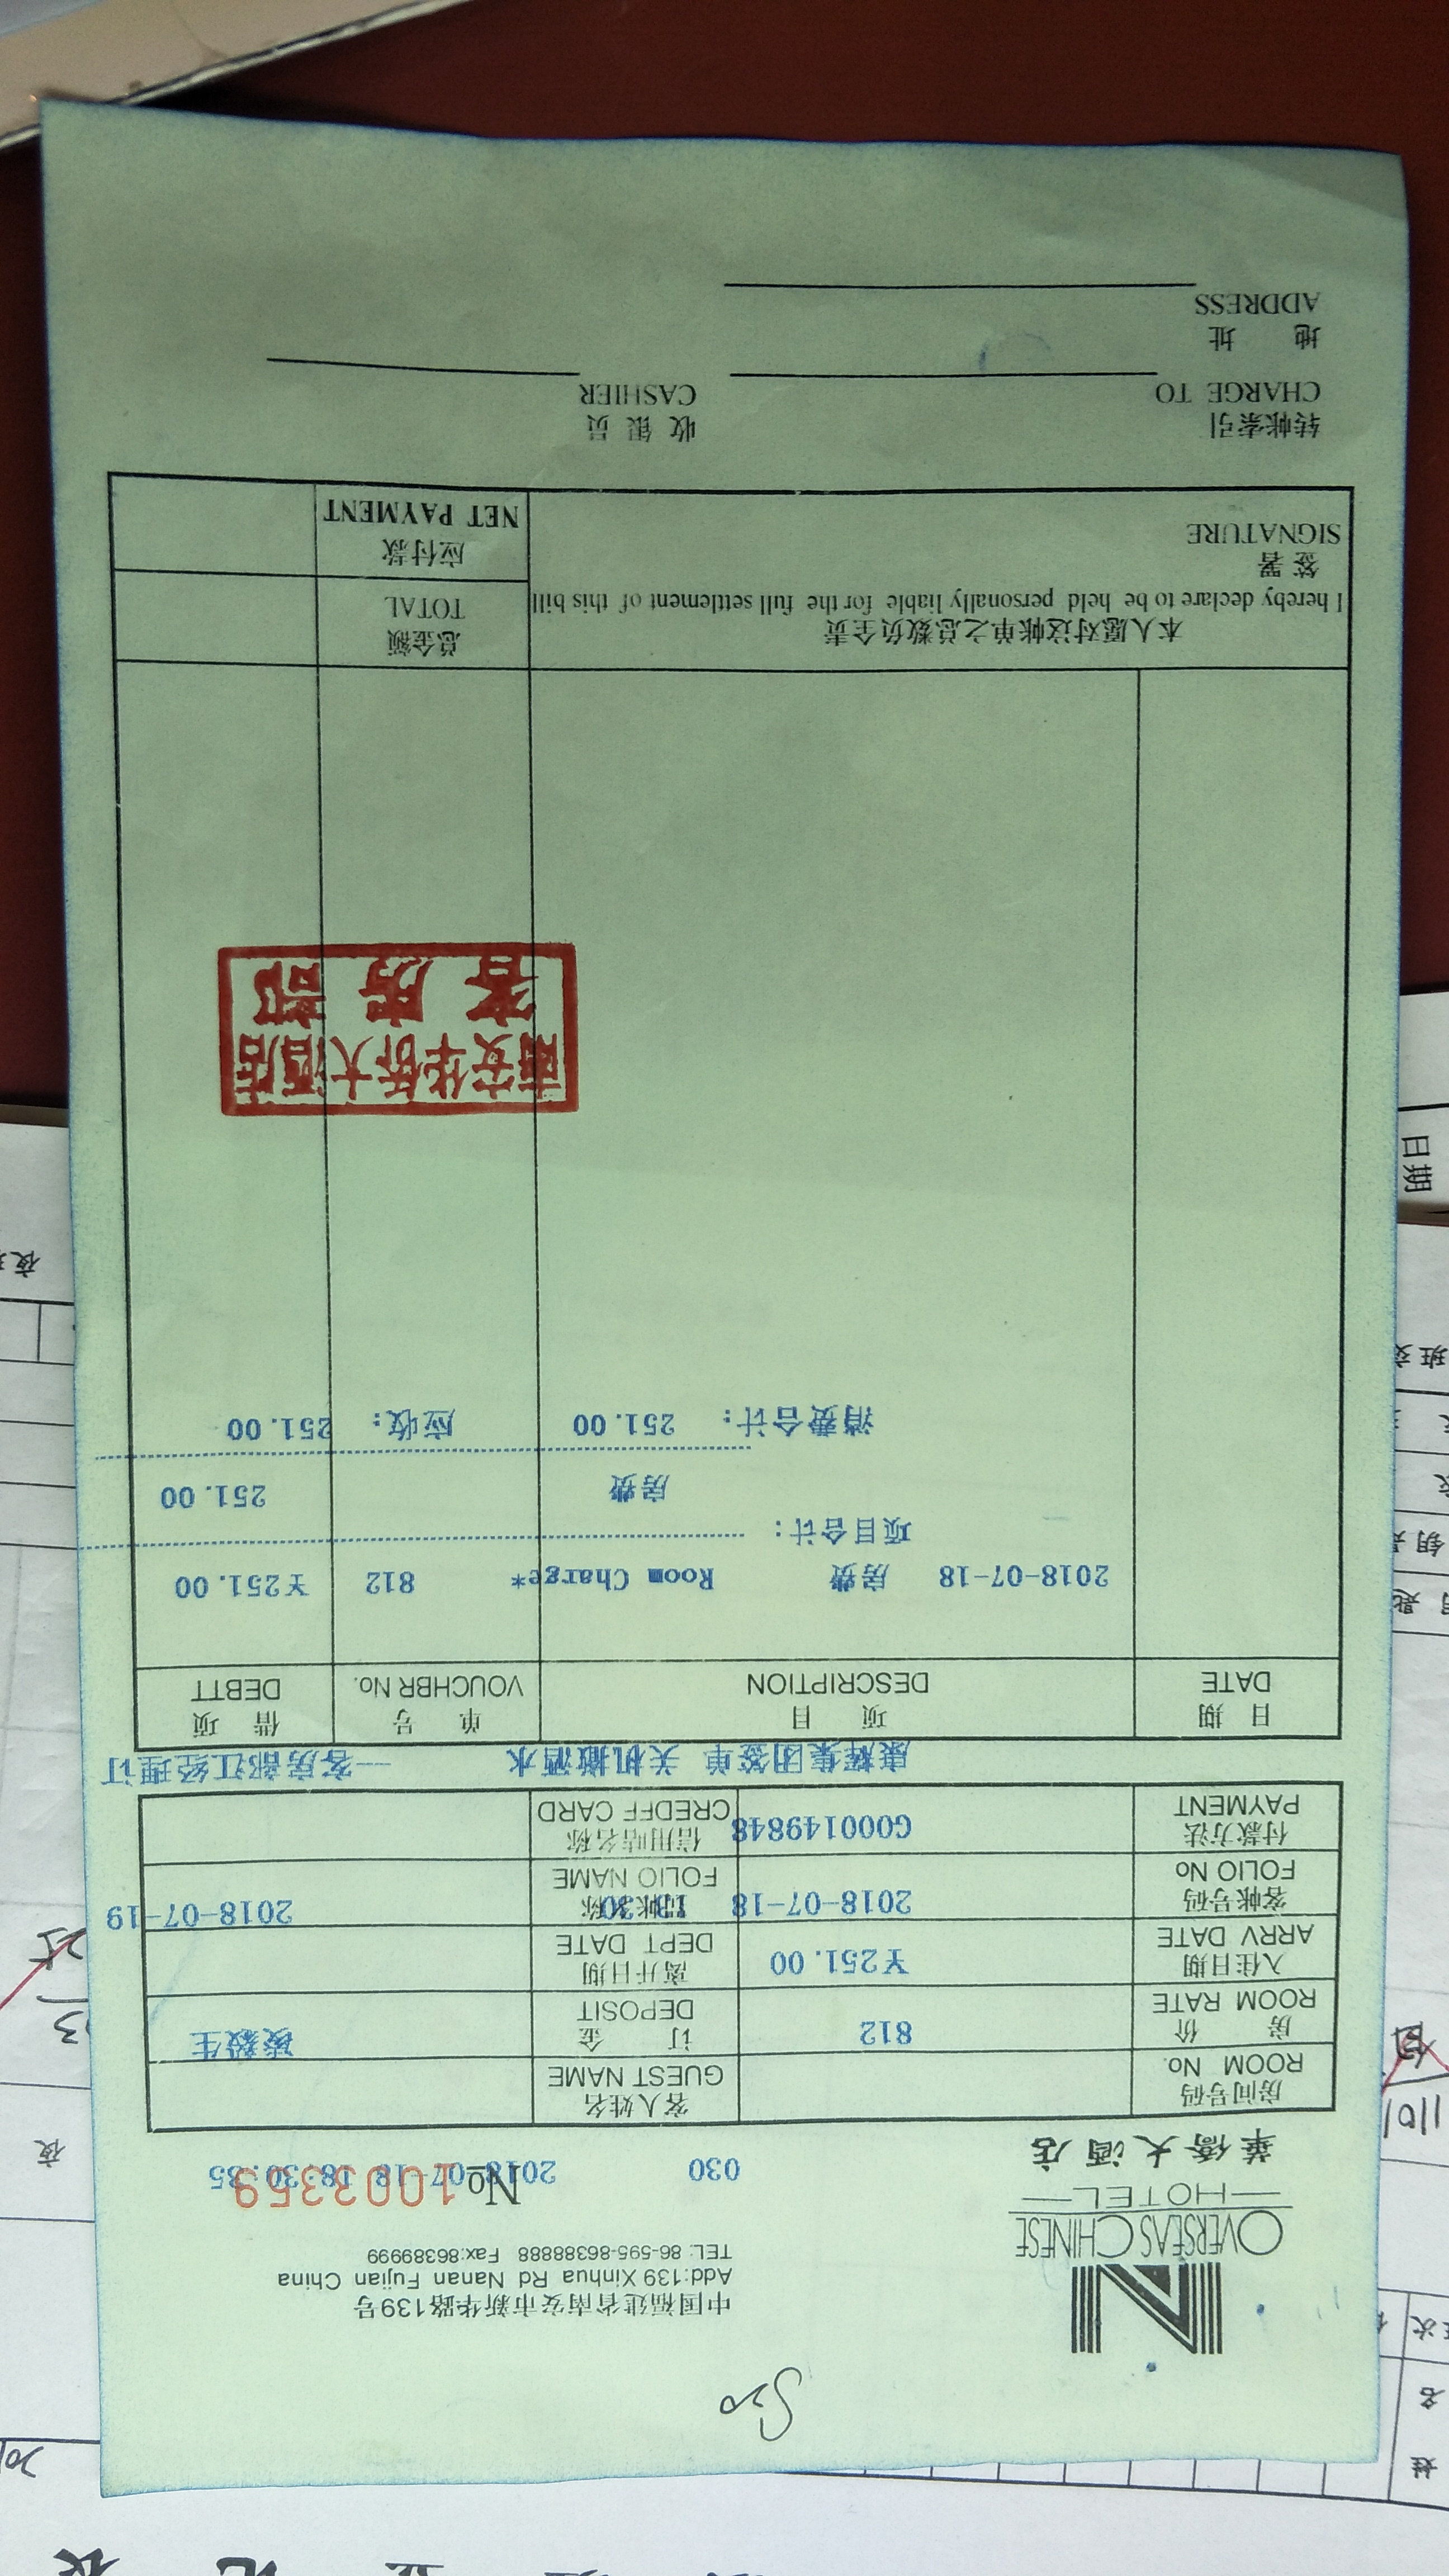 S20
中国福建省南安市新华路139号
Add:139 Xinhua Rd Nanan Fujian China
TEL: 86-595-86388888 Fax:86389999
N
OVERSEAS CHINESE
HOTEL
華僑大酒店
№ 1003359
030 2018-07-18 18:30:35
房间号码 客人姓名
ROOM No. GUEST NAME
812 毅生
房价 订金
ROOM RATE DEPOSIT
¥251.00
入住日期 离开日期
ARRV DATE DEPT DATE
2018-07-18 2018-07-19
客帐号码
FOLIO No FOLIO NAME
G000149848
付款方法 信用咭名称
PAYMENT CREDFF CARD
康辉集团签单 关机撤酒水 —客房部江经理订
日期 项目 单号 借项
DATE DESCRIPTION VOUCHBR No. DEBTT
2018-07-18 房费 Room Charge* 812 ¥251.00
项目合计:
房费 251.00
消费合计: 251.00 应收: 251.00
南安华侨大酒店
客房部
本人愿对这帐单之总数负全责 总金额
I hereby declare to be held personally liable for the full settlement of this bill TOTAL
签署 应付款
SIGNATURE NET PAYMENT
转帐索引 收银员
CHARGE TO CASHIER
地址
ADDRESS
日期
姓名
1101